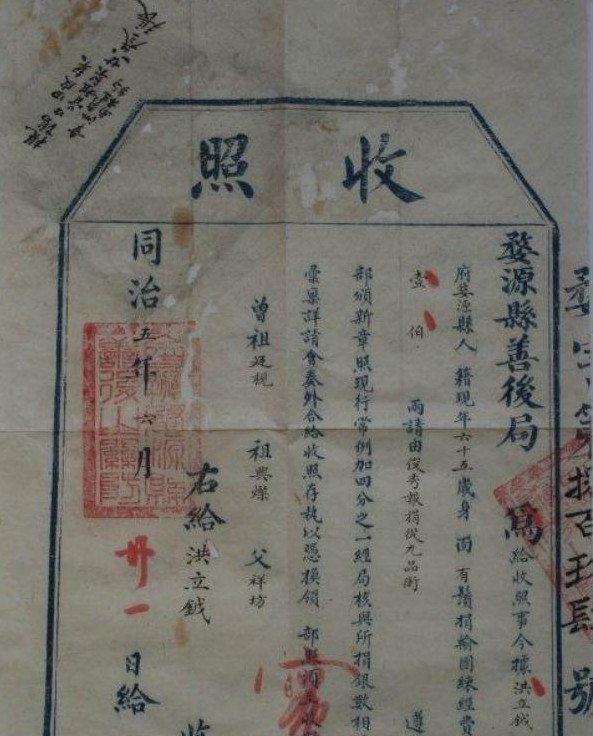 收照
婺源縣善後局
爲給收照事今據洪立鉞
府婺源縣人籍現年六十五歲身面有鬚捐輸團練經費
壹伯兩請由俊秀報捐從九品銜遵
部頒新章照現行常例加四分之一經局核與所捐銀數相
彙案詳請會奏外合給收照存執以憑換領部照須至收
曾祖廷梘祖興燦父祥坊
右給洪立鉞收
同治五年六月廿一日給
婺字第
號